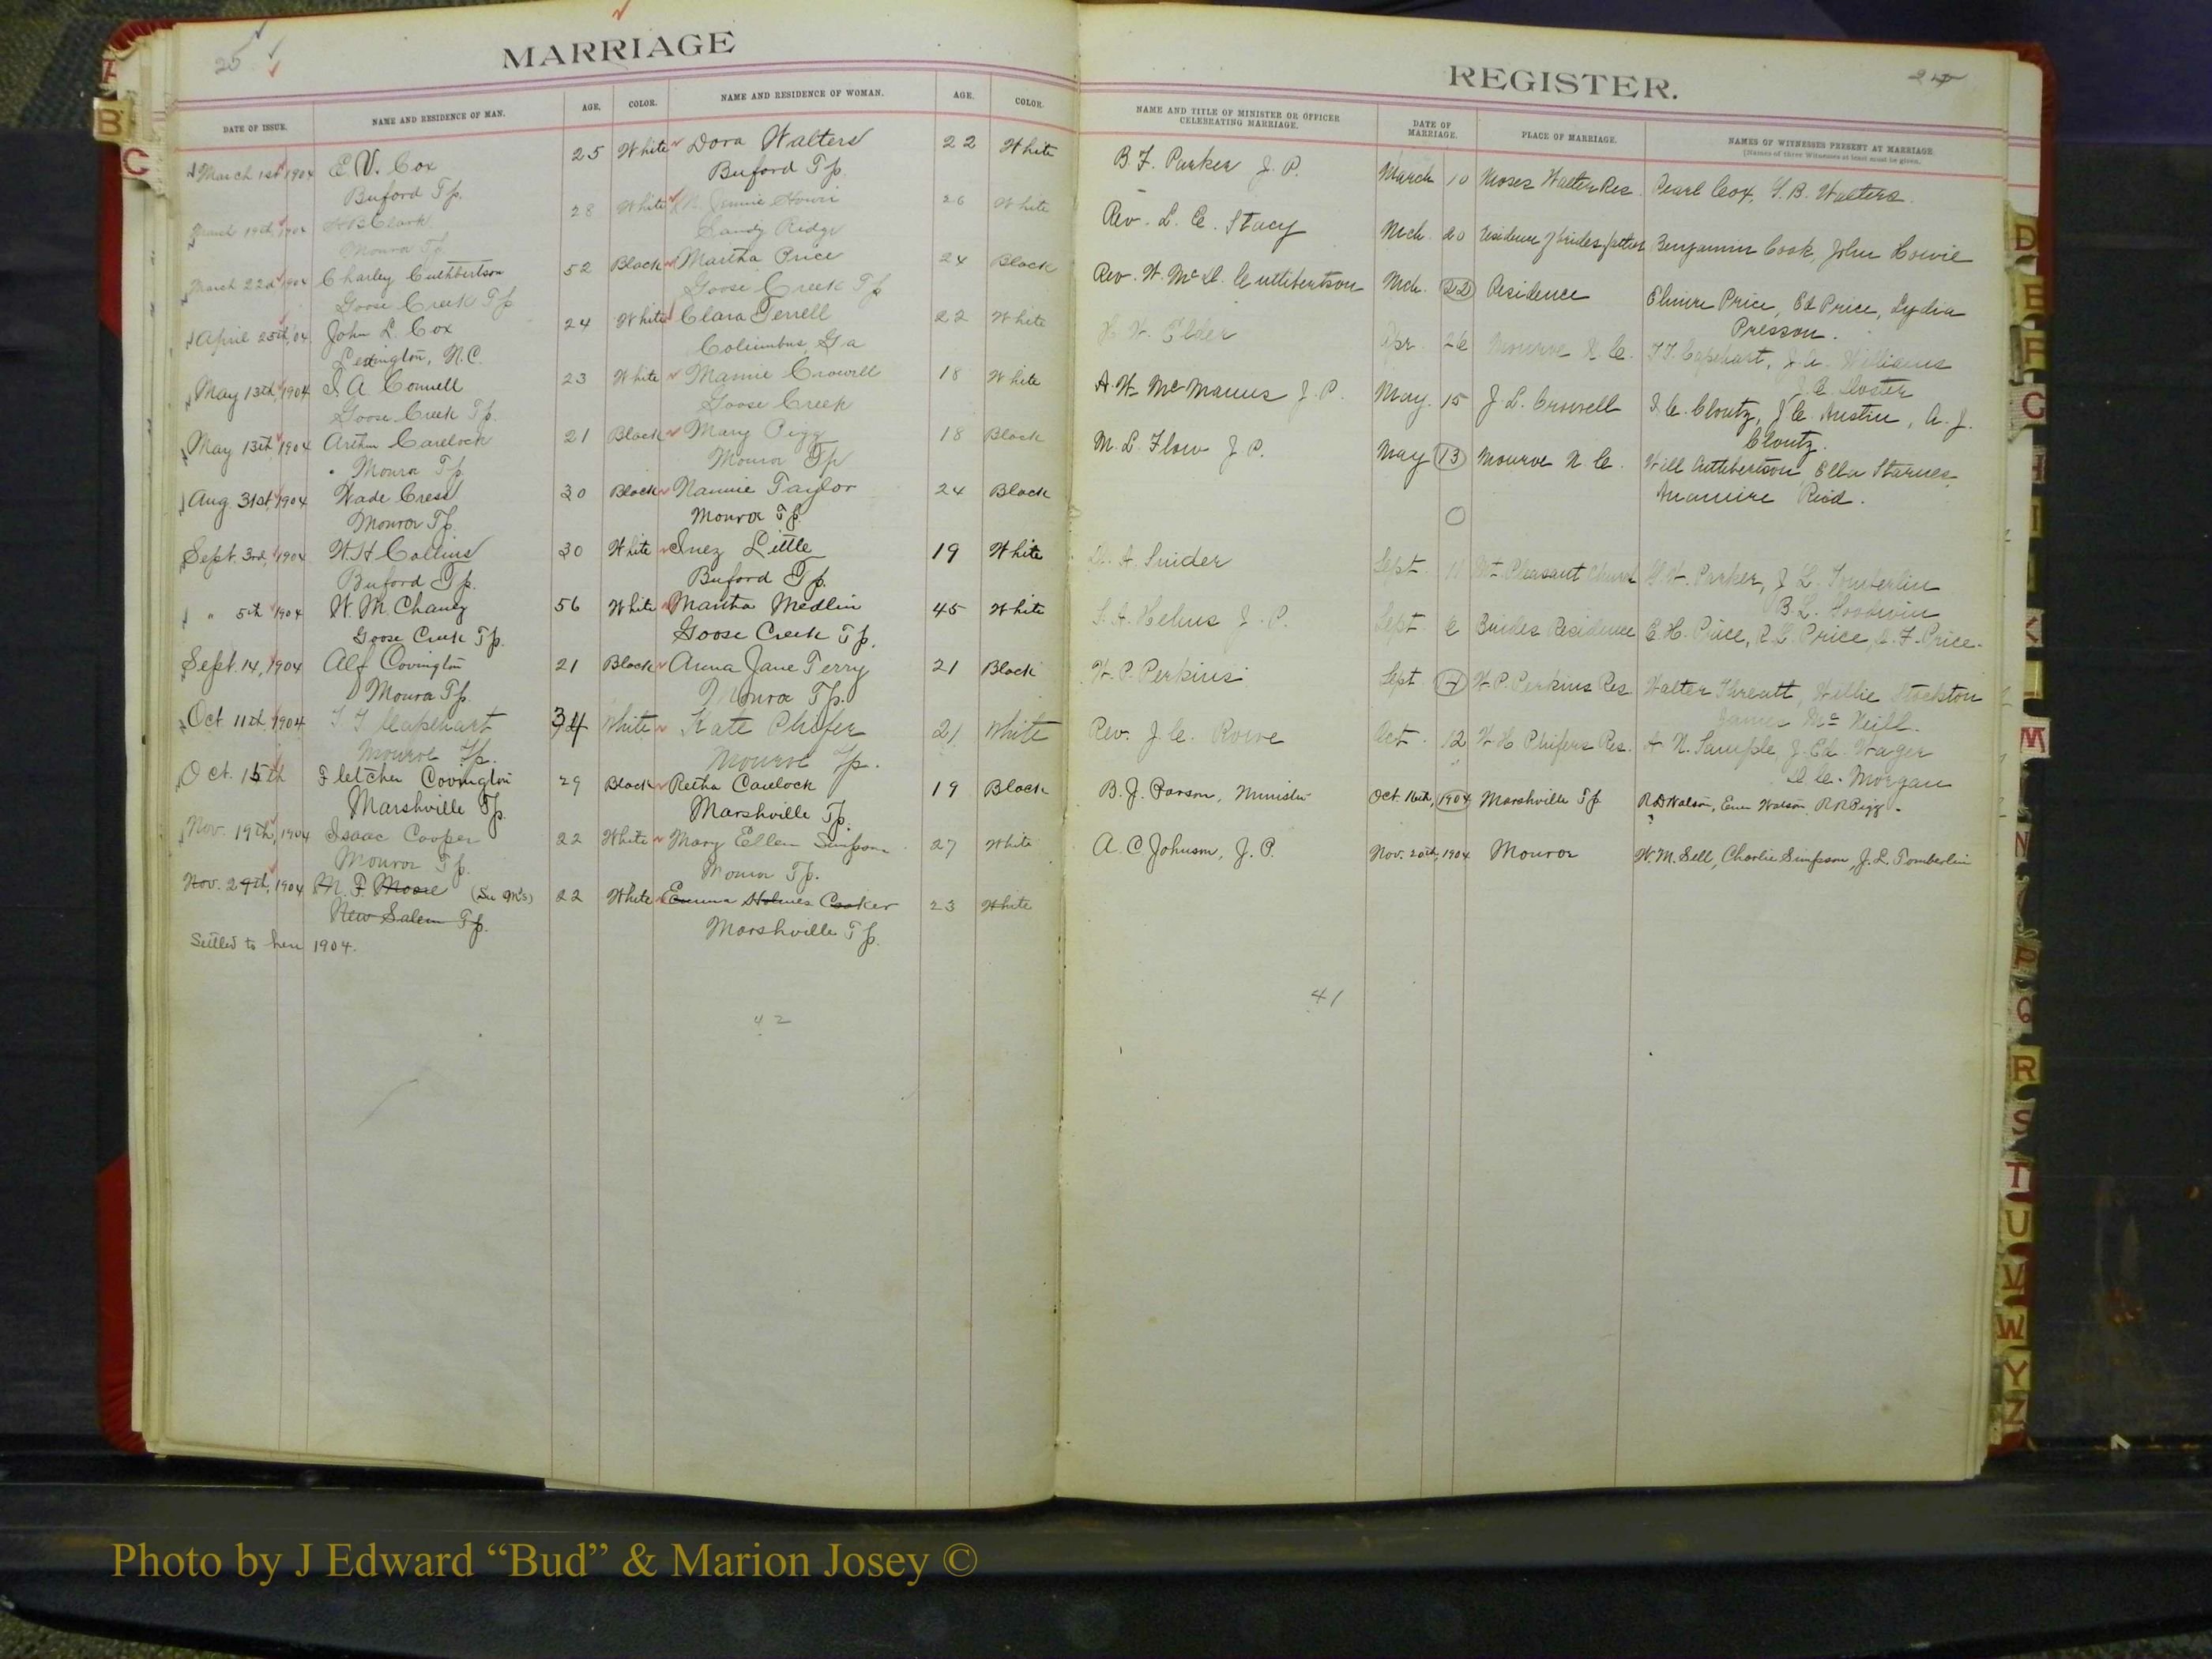 25
MARRIAGE
DATE OF ISSUE. NAME AND RESIDENCE OF MAN. AGE. COLOR. NAME AND RESIDENCE OF WOMAN. AGE. COLOR.
March 1st 1904 E. V. Cox 25 White Dora Walters 22 White
Buford Tp. Buford Tp.
March 19th, 1904 Clark 28 White Jennie Howie 26 White
Monroe Tp. Sandy Ridge
March 22d 1904 Charley Cuthbertson 52 Black Martha Price 24 Black
Goose Creek Tp Goose Creek Tp
April 25th, 04 John L. Cox 24 White Clara Terrell 22 White
Lexington, N.C. Columbus, Ga
May 13th, 1904 A. Connell 23 White Mamie Crowell 18 White
Goose Creek Tp. Goose Creek
May 13th, 1904 Arthur Carelock 21 Black Mary Pigg 18 Black
Monroe Tp. Monroe Tp
Aug. 31st, 1904 Wade Cress 30 Black Nannie Taylor 24 Black
Monroe Tp. Monroe Tp.
Sept. 3rd, 1904 W. H Collins 30 White Inez Little 19 White
Buford Tp. Buford Tp.
" 5th 1904 W. M. Chaney 56 White Martha Medlin 45 White
Goose Creek Tp. Goose Creek Tp.
Sept. 14, 1904 Alf Covington 21 Black Anna Jane Terry 21 Black
Monroe Tp. Monroe Tp.
Oct 11th, 1904 T. T. Capehart 34 White Kate Phifer 21 White
Monroe Tp. Monroe Tp.
Oct. 15th Fletcher Covington 29 Black Retha Carelock 19 Black
Marshville Tp. Marshville Tp.
Nov. 19th, 1904 Isaac Cooper 22 White Mary Ellen Simpson 27 White
Monroe Tp. Monroe Tp.
Nov. 29th, 1904 M. F. Moore (See M's) 22 White Emma Holmes Cooker 23 White
New Salem Tp. Marshville Tp.
Settled to here 1904.
42
REGISTER.
NAME AND TITLE OF MINISTER OR OFFICER CELEBRATING MARRIAGE. DATE OF MARRIAGE. PLACE OF MARRIAGE. NAMES OF WITNESSES PRESENT AT MARRIAGE
[Names of three Witnesses at least must be given.
B. F. Parker J. P. March 10 Moses Walters Res. Pearl Cox, Walters.
Rev. L. E. Stacy Mch. 20 residence of brides father Benjamin Cook, John Howie
Rev. W. McD. Cuttibertson Mch. 22 Residence Elmire Price, Ed Price, Lydia
Presson.
Elder Apr. 26 Monroe N. C. T. T. Capehart, J. A. Williams
J. C. Doster
A. W. McManus J. P. May. 15 J. L. Crowell Cloutz, J. C. Austin, A. J.
Cloutz.
M. L. Flow J. P. May 13 Monroe N. C. Will Cuttibertson, Ella Starnes,
Reid.
A. Snider Sept. 11 Mt Pleasant Church Parker, J. L. Tomberlin
B. L. Goodwin
Helms J. P. Sept. 6 Brides Residence C. H. Price, R. L. Price, F. Price.
W. P. Perkins Sept W. P. Perkins Res Walter Threatt, Willie Stockton
James McNeill.
Rev. J. C. Rowe Oct. 12 W. H. Phifers Res. A. N. Sample, J. Ed. Wager
Morgan
B. J. Parson, Minister Oct. 16th, 1904 Marshville Tp R. D Watson, Watson, R. R Pigg.
A. C. Johnson, J. P. Nov. 20th, 1904 Monroe W. M. Sell, Charlie Simpson, J. L. Tomberlin
41
A
B
C
D
E
F
G
H
I
K
M
N
P
Q
R
S
T
U
V
W
Y
Z
Photo by J Edward “Bud” & Marion Josey ©